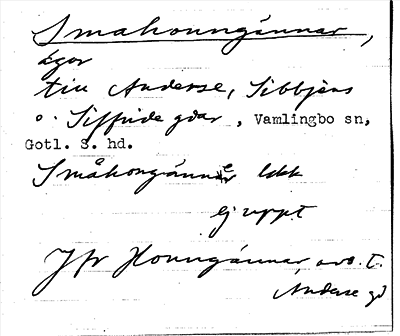 Smahonngánnar,
ägor
till Anderse, Sibbjens
o. Siffride gdar, Vamlingbo sn,
Gotl. S. hd.
Småhongánnar
ej uppt
Jfr Honngánnar, avs. t.
Anderse gd